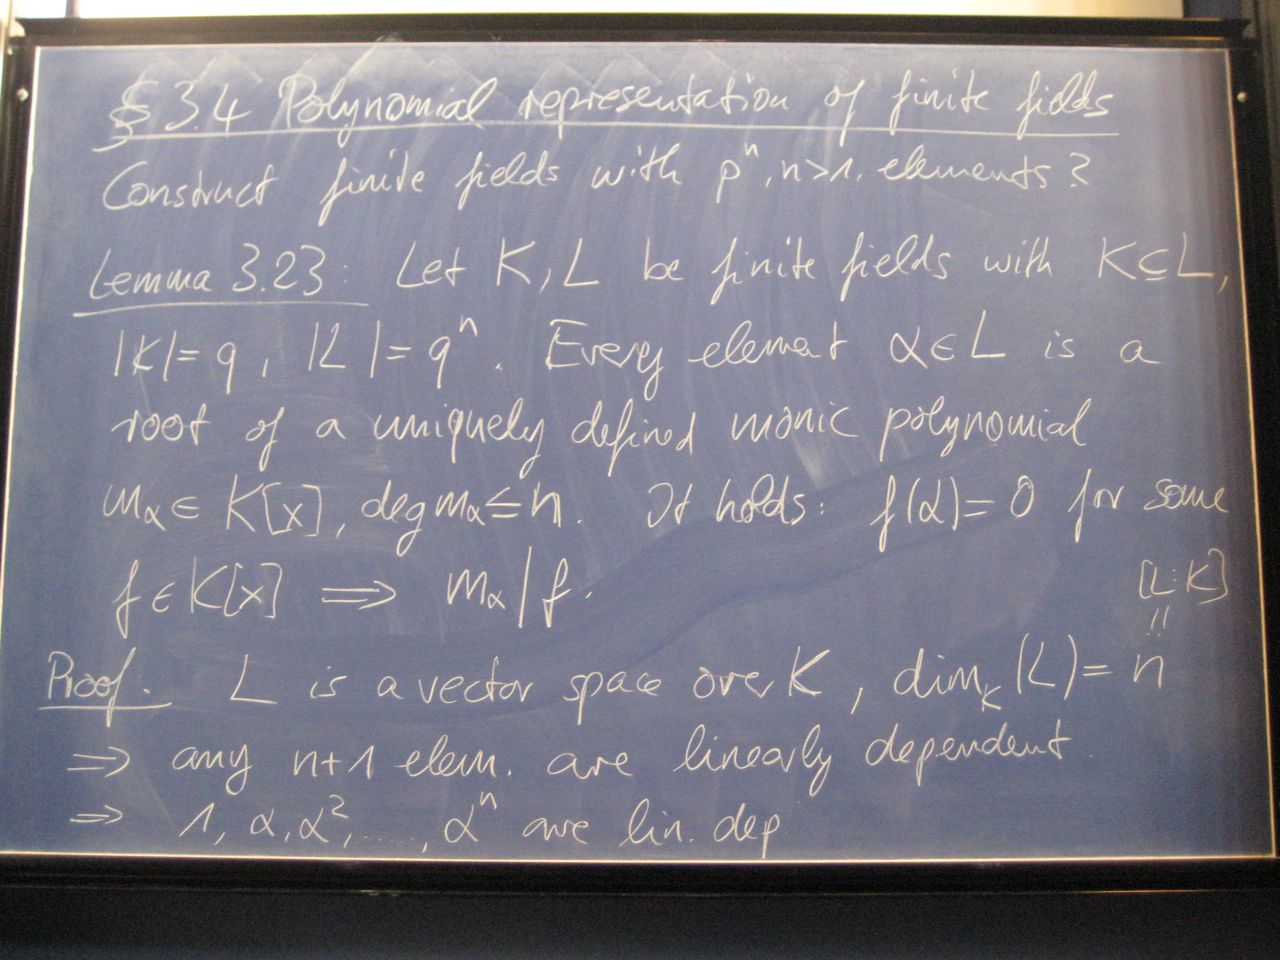 § 3.4 Polynomial representation of finite fields
Construct finite fields with pⁿ, n>1, elements?
Lemma 3.23: Let K, L be finite fields with K⊆L,
|K|=q, |L|=qⁿ. Every element α∈L is a
root of a uniquely defined monic polynomial
mα ∈ K[x], deg mα ≤ n. It holds: f(α)=0 for some
f∈K[x] ⟹ mα|f.
[L:K]
=
Proof. L is a vector space over K, dim_K(L)=n
⟹ any n+1 elem. are linearly dependent.
⟹ 1, α, α², ..., αⁿ are lin. dep